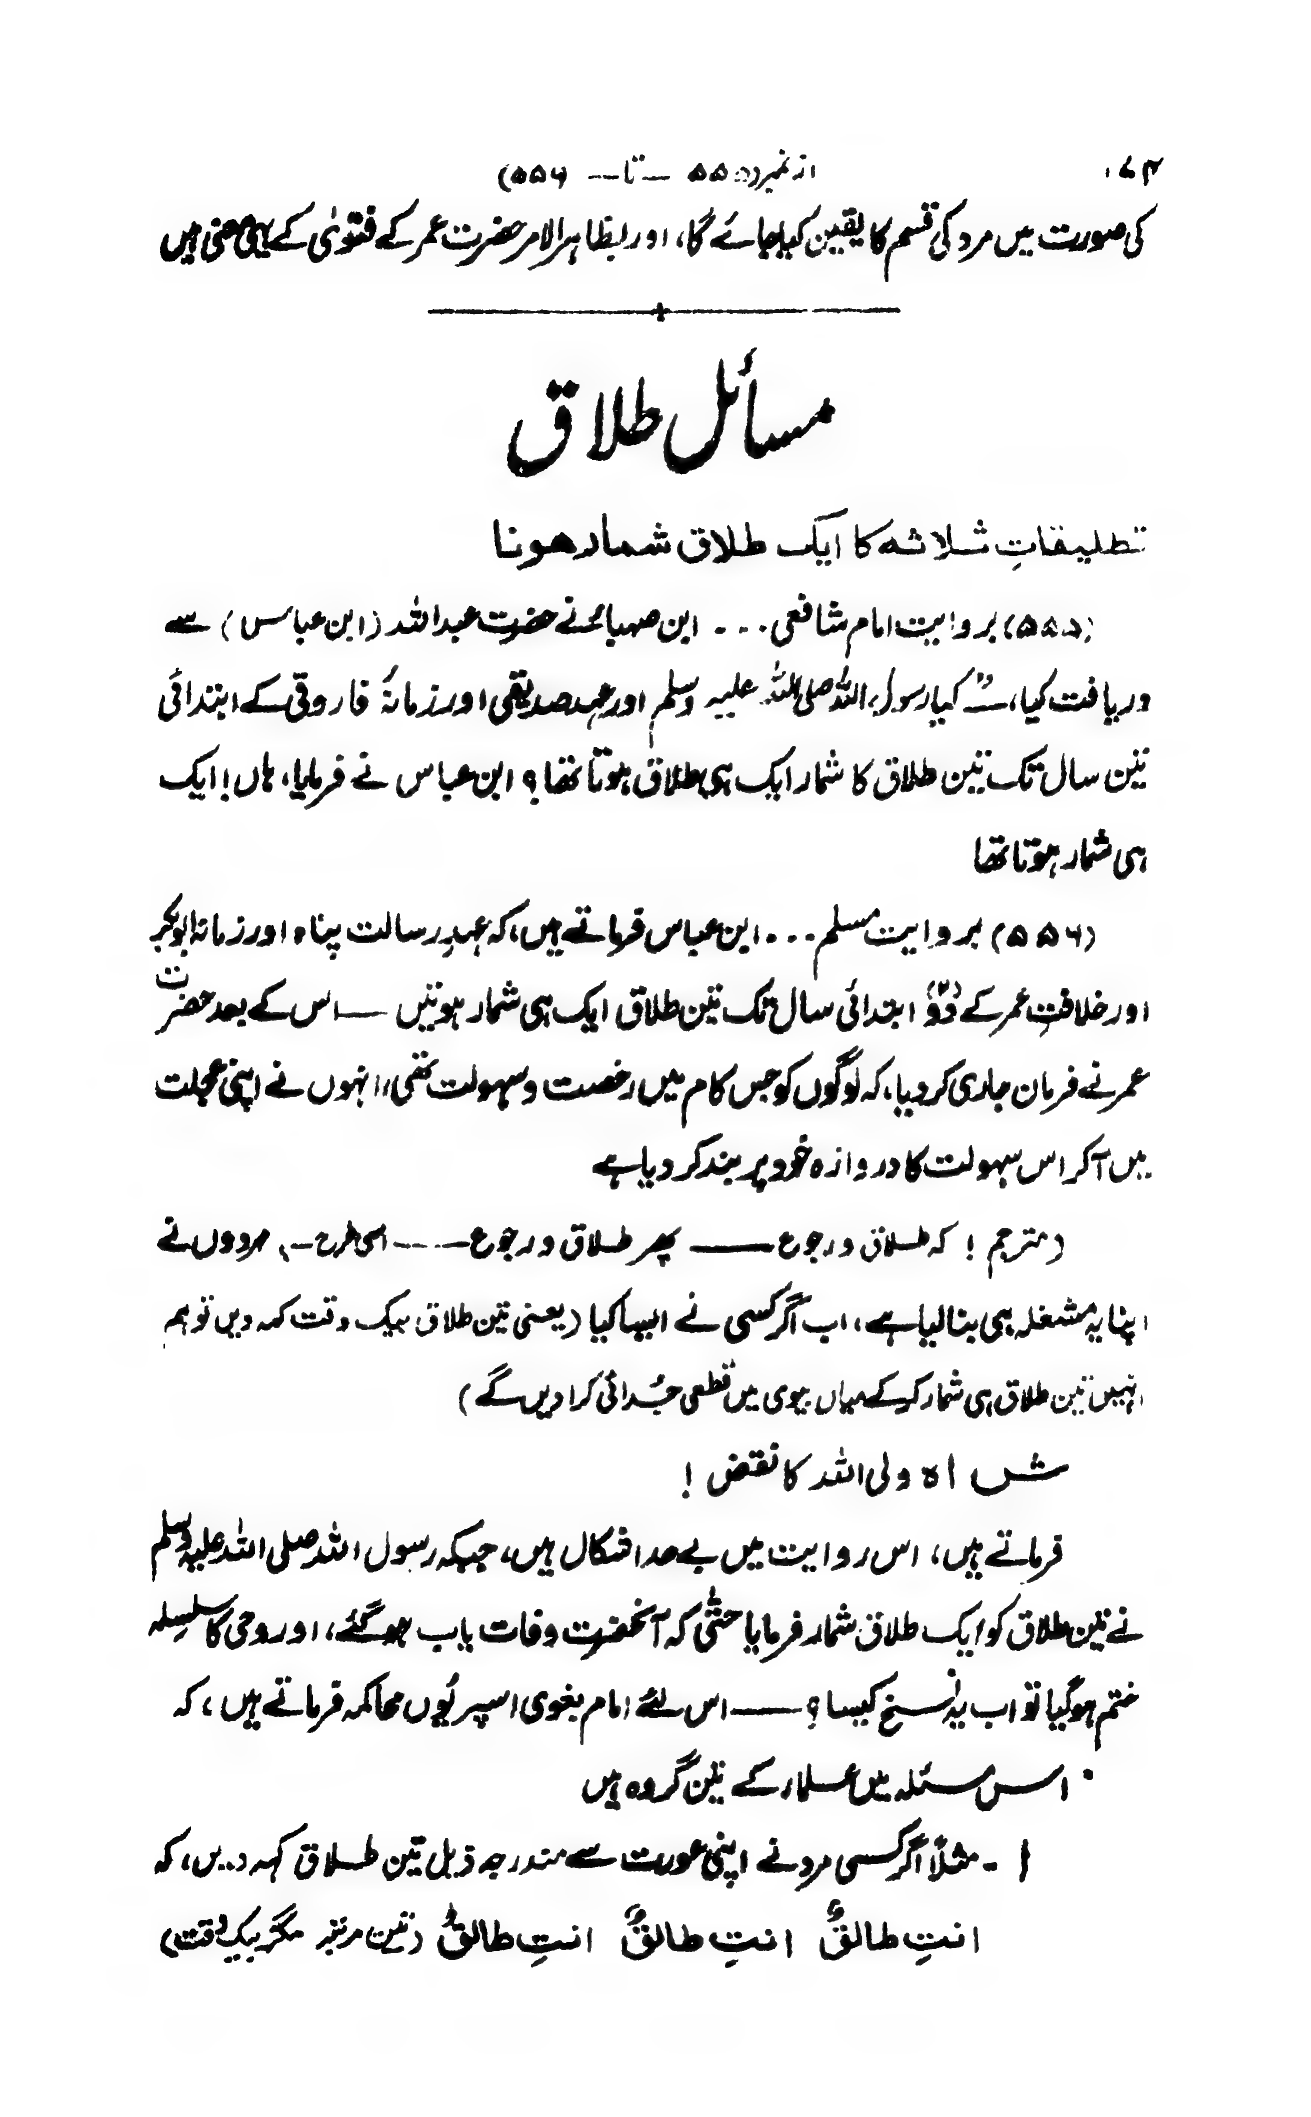 ۱۷۴
از نمبر (۵۵۵ — تا — ۵۵۶)
کی صورت میں مرد کی قسم کا یقین کیا جائے گا، اور بظاہر الامر حضرت عمر کے فتویٰ کے یہی معنی ہیں
مسائل طلاق
تطلیقاتِ ثلاثہ کا ایک طلاق شمار ہونا
(۵۵۵) بروایت امام شافعی ... ابن صہبا نے حضرت عبداللہ (ابن عباس) سے
دریافت کیا، کیا رسول اللہ صلی اللہ علیہ وسلم اور عہد صدیقی اور زمانۂ فاروقی کے ابتدائی
تین سال تک تین طلاق کا شمار ایک ہی طلاق ہوتا تھا؟ ابن عباس نے فرمایا، ہاں! ایک
ہی شمار ہوتا تھا
(۵۵۶) بروایت مسلم ... ابن عباس فرماتے ہیں، کہ عہدِ رسالت پناہ اور زمانہ ابوبکر
اور خلافتِ عمر کے دو (۲) ابتدائی سال تک تین طلاق ایک ہی شمار ہوتیں — اس کے بعد حضرت
عمر نے فرمان جاری کر دیا، کہ لوگوں کو جس کام میں رخصت و سہولت تھی، انہوں نے اپنی عجلت
میں آکر اس سہولت کا دروازہ خود پر بند کر دیا ہے
(مترجم! کہ طلاق و رجوع — پھر طلاق و رجوع ---- اسی طرح -، مردوں نے
اپنا یہ مشغلہ ہی بنا لیا ہے، اب اگر کسی نے ایسا کیا (یعنی تین طلاق بیک وقت کہہ دیں تو ہم
انہیں تین طلاق ہی شمار کر کے میاں بیوی میں قطعی جُدائی کرا دیں گے)
شاہ ولی اللہ کا نقض!
فرماتے ہیں، اس روایت میں بے حد اشکال ہیں، جبکہ رسول اللہ صلی اللہ علیہ وسلم
نے تین طلاق کو ایک طلاق شمار فرمایا حتّٰی کہ آنحضرت وفات یاب ہو گئے، اور وحی کا سلسلہ
ختم ہو گیا تو اب یہ نسخ کیسا؟ — اس لئے امام بغوی اسپر یُوں محاکمہ فرماتے ہیں، کہ
• اس مسئلہ میں علماء کے تین گروہ ہیں
۱ - مثلاً اگر کسی مرد نے اپنی عورت سے مندرجہ ذیل تین طلاق کہہ دیں، کہ
انتِ طالقٌ انتِ طالقٌ انتِ طالقٌ (تین مرتبہ مگر بیک وقت)